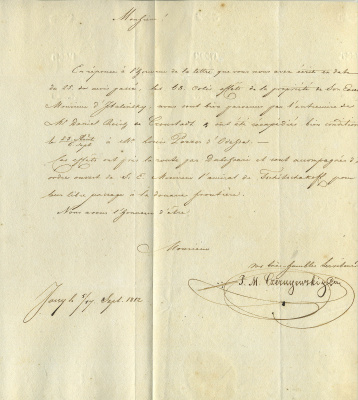 Monsieur
En réponse à l'honneur de la lettre que vous nous avez écrite en date
du 22 du mois passé, les 23 Colis effets de la propriété de Son Exc
Monsieur d'Italinsky, nous sont bien parvenus par l'entremise de
Mr Daniel in Cronstadt & ont été expédiés bien conditionnés
le à Mr Louis d'Odessa. —
Ces effets ont pris la route par et sont accompagnés d'un
ordre ouvert de S. E. Monsieur l'amiral de Tschitschakoff, pour
leur libre passage à la douane frontière.
Nous avons l'honneur d'être
Monsieur
vos très humbles serviteurs
J. M.
Jassy le 5/17 Sept. 1812